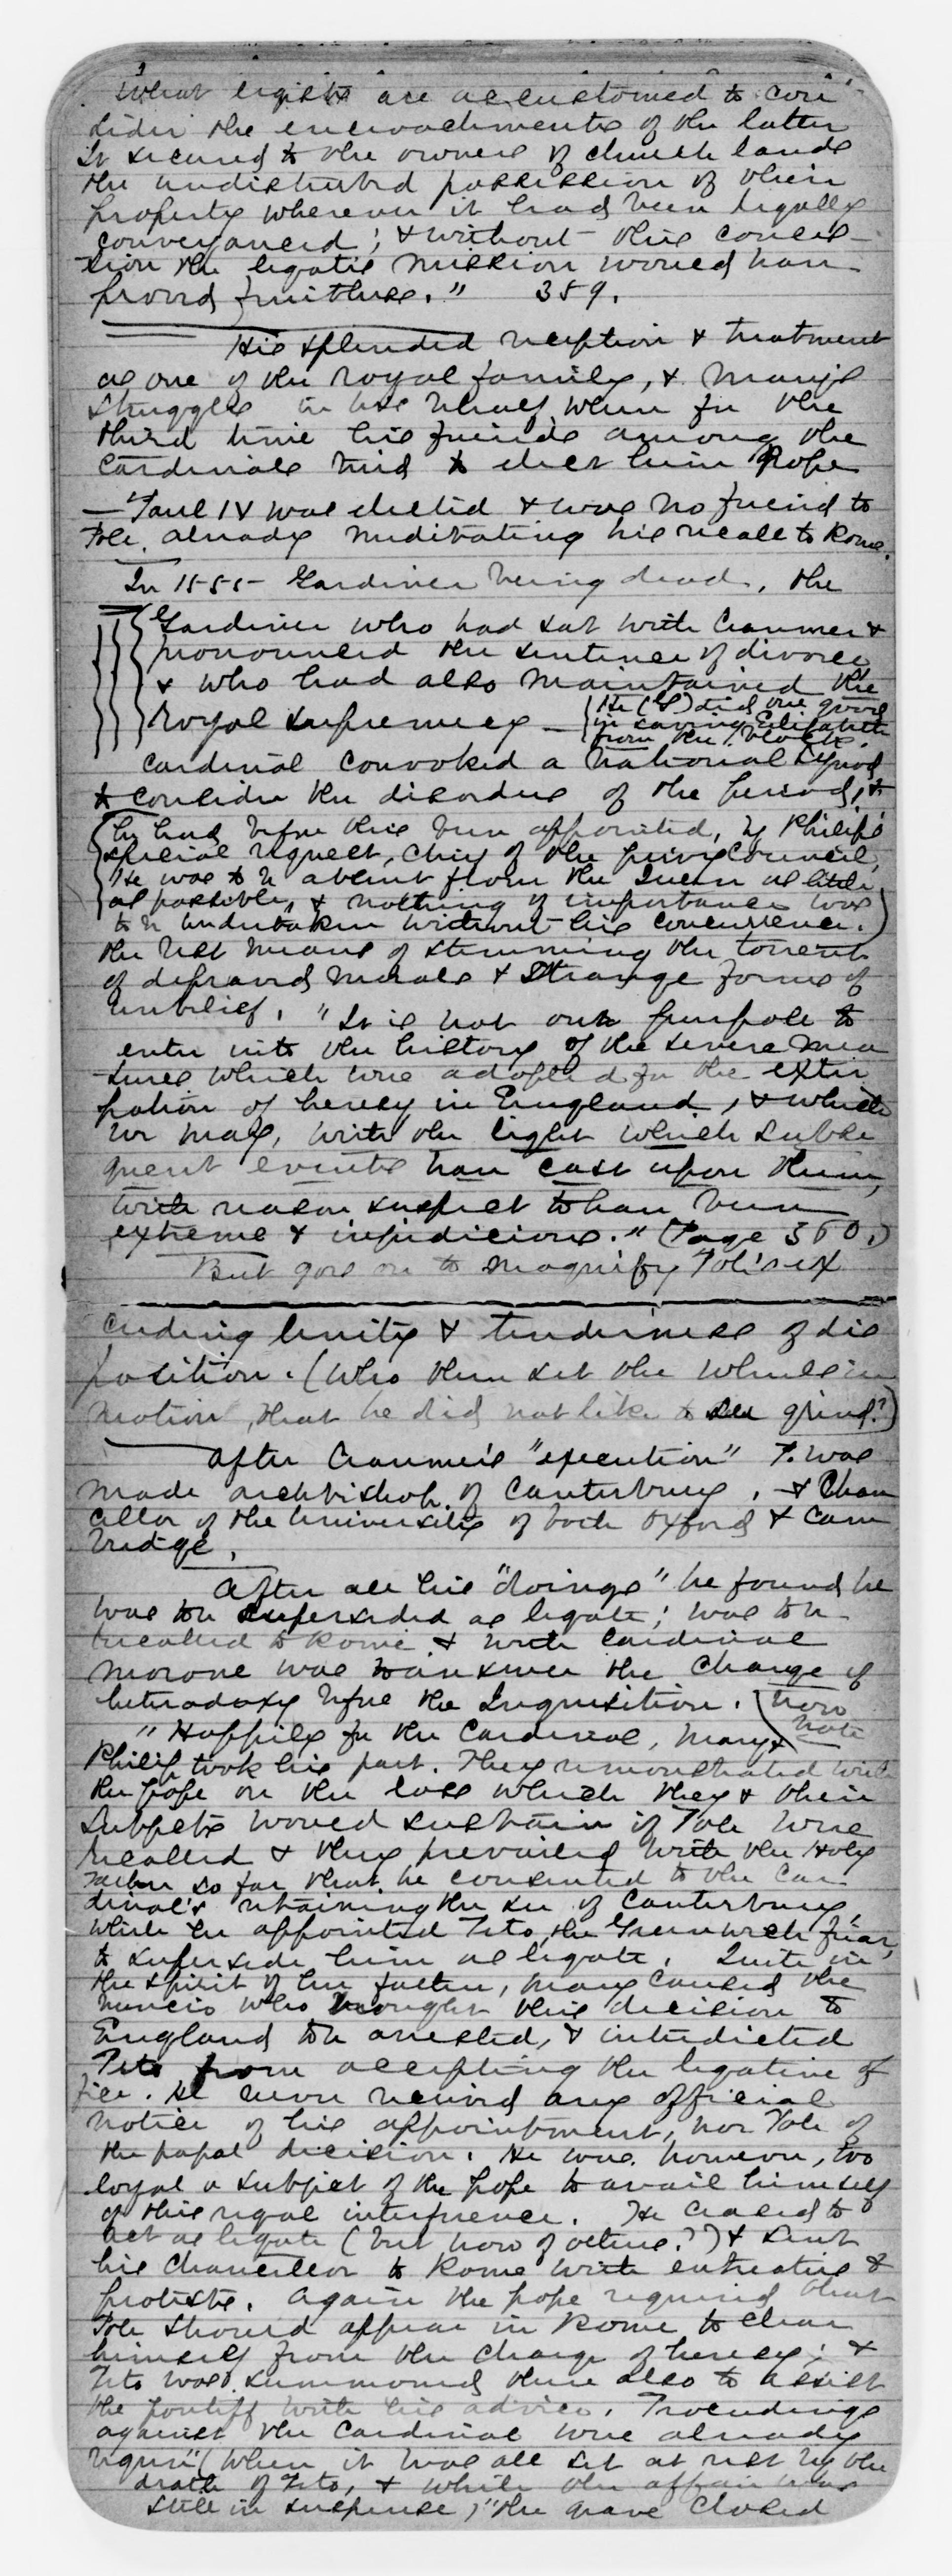 What legists are accustomed to con-
sider the encroachments of the latter
It secured to the owners of church lands
the undisturbed possession of their
property wherever it had been legally
conveyanced; & without this conces-
sion the legatis mission would have
proved fruitless." 359.
His splendid reception & treatment
as one of the royal family, & Mary's
struggles in his behalf when for the
third time his friends among the
Cardinals tried to elect him Pope
— Paul IV was elected & was no friend to
Pole, already meditating his recall to Rome.
In 1555 — Gardiner being dead, the
Gardiner who had sat with Cranmer &
pronounced the sentence of divorce
& who had also maintained the
Royal supremacy —
He (G) did one good
in saving Elizabeth
from the block.
Cardinal convoked a National Synod
to consider the disorders of the period, &
he had before this been appointed, by Philip's
special request, Chief of the privy Council,
He was to be absent from the Queen as little
as possible, & nothing of importance was
to be undertaken without his concurrence.)
the best means of stemming the torrent
of depraved morals & strange forms of
unbelief. "It is not our purpose to
enter into the history of the severe mea
sures which were adopted for the extir
pation of heresy in England, & which
we may, with the light which subse
quent events have cast upon them,
with reason suspect to have been
extreme & injudicious." (Page 360.)
But goes on to magnify Pole's ex
ceeding lenity & tenderness of dis
position. (Who then set the wheels in
motion, that he did not like to see grind?)
After Cranmer's "execution" P. was
made archbishop of Canterbury, & Chan
cellor of the University of both Oxford & Cam
bridge.
After all his "doings" he found he
was to be superseded as legate; was to be
recalled to Rome & with Cardinal
Morone was to answer the charge of
heterodoxy before the Inquisition. (how
note
"Happily for the Cardinal, Mary &
Philip took his part. They remonstrated with
the pope on the loss which they & their
subjects would sustain if Pole were
recalled & they prevailed with the Holy
Father so far that he consented to the Car
dinal's retaining the see of Canterbury,
while he appointed Peto, the Greenwich friar,
to supersede him as legate. Quite in
the spirit of her father, Mary caused the
nuncio who brought this decision to
England to be arrested, & interdicted
Peto from accepting the legatine of
fice. He never received any official
notice of his appointment, nor Pole of
the papal decision. He was, however, too
loyal a subject of the pope to avail himself
of this regal interference. He ceased to
act as legate (but how of others?) & sent
his Chancellor to Rome with entreaties &
protests. Again the pope required that
Pole should appear in Rome to clear
himself from the charge of heresy; &
Peto was summoned there also to assist
the pontiff with his advice. Proceedings
against the Cardinal were already
begun" (when it was all set at rest by the
death of Peto, & while the affair was
still in suspense,) "the grave closed